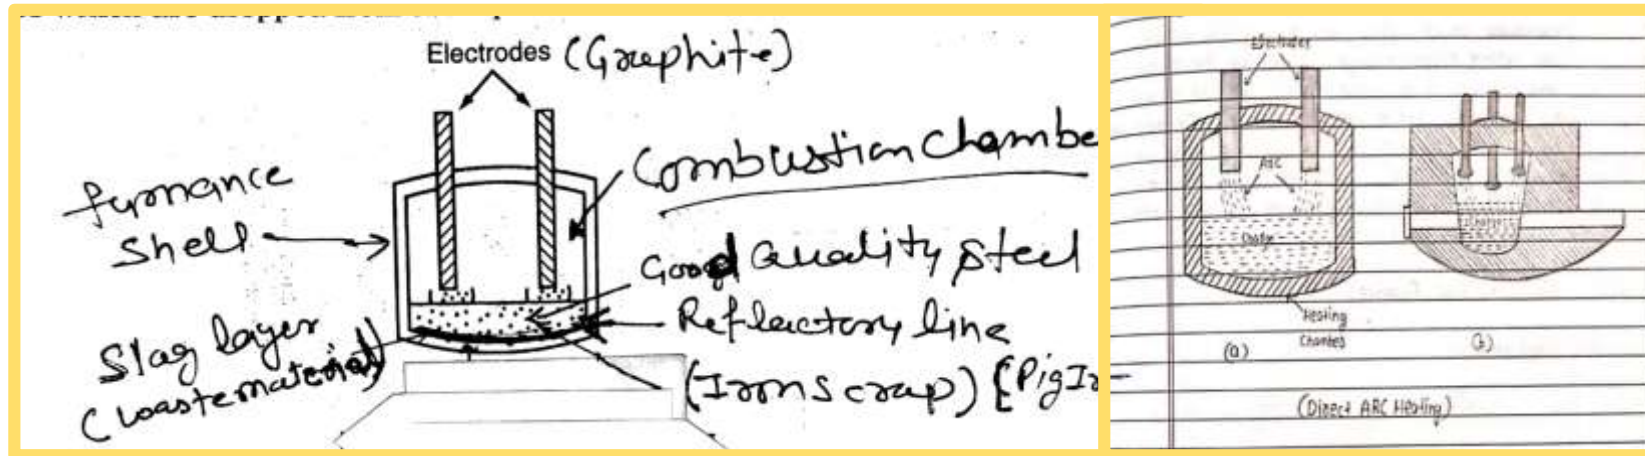 Electrodes (Graphite)
Combustion Chambe
furnance
Shell
Good Quality steel
Reflactory line
Slag layer
(Waste material)
(Iron scrap) [Pig Ir
Electrodes
Arc
Charge
Charge
Heating
Chamber
(a)
(b)
(Direct ARC Heating)